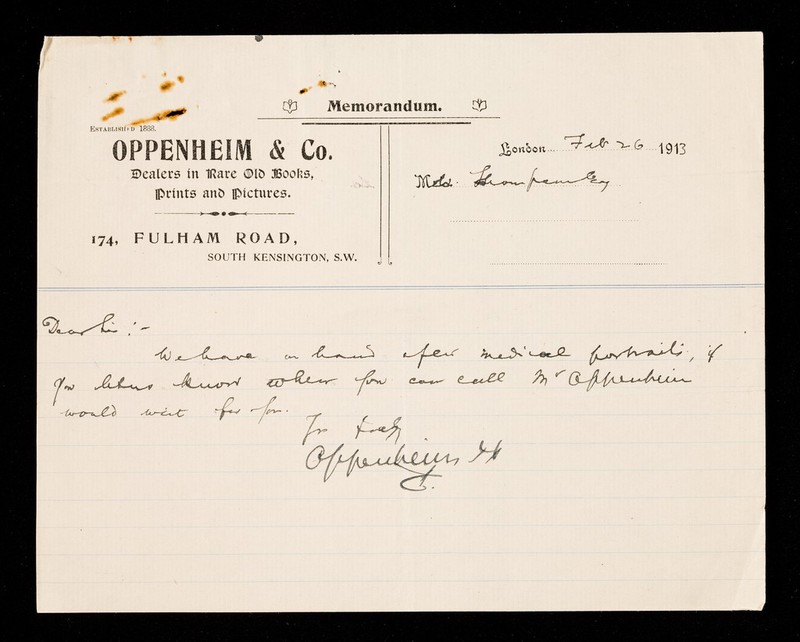 Memorandum.
ESTABLISHED 1888.
OPPENHEIM & Co.
Dealers in Rare Old Books,
Prints and Pictures.
174, FULHAM ROAD,
SOUTH KENSINGTON, S.W.
London Feb 26 1913
Thompson Esq
Dear Sir :-
We have on hand a few medical portraits, if
you let us know when you can call Mr Oppenheim
would wait for you.
Oppenheim